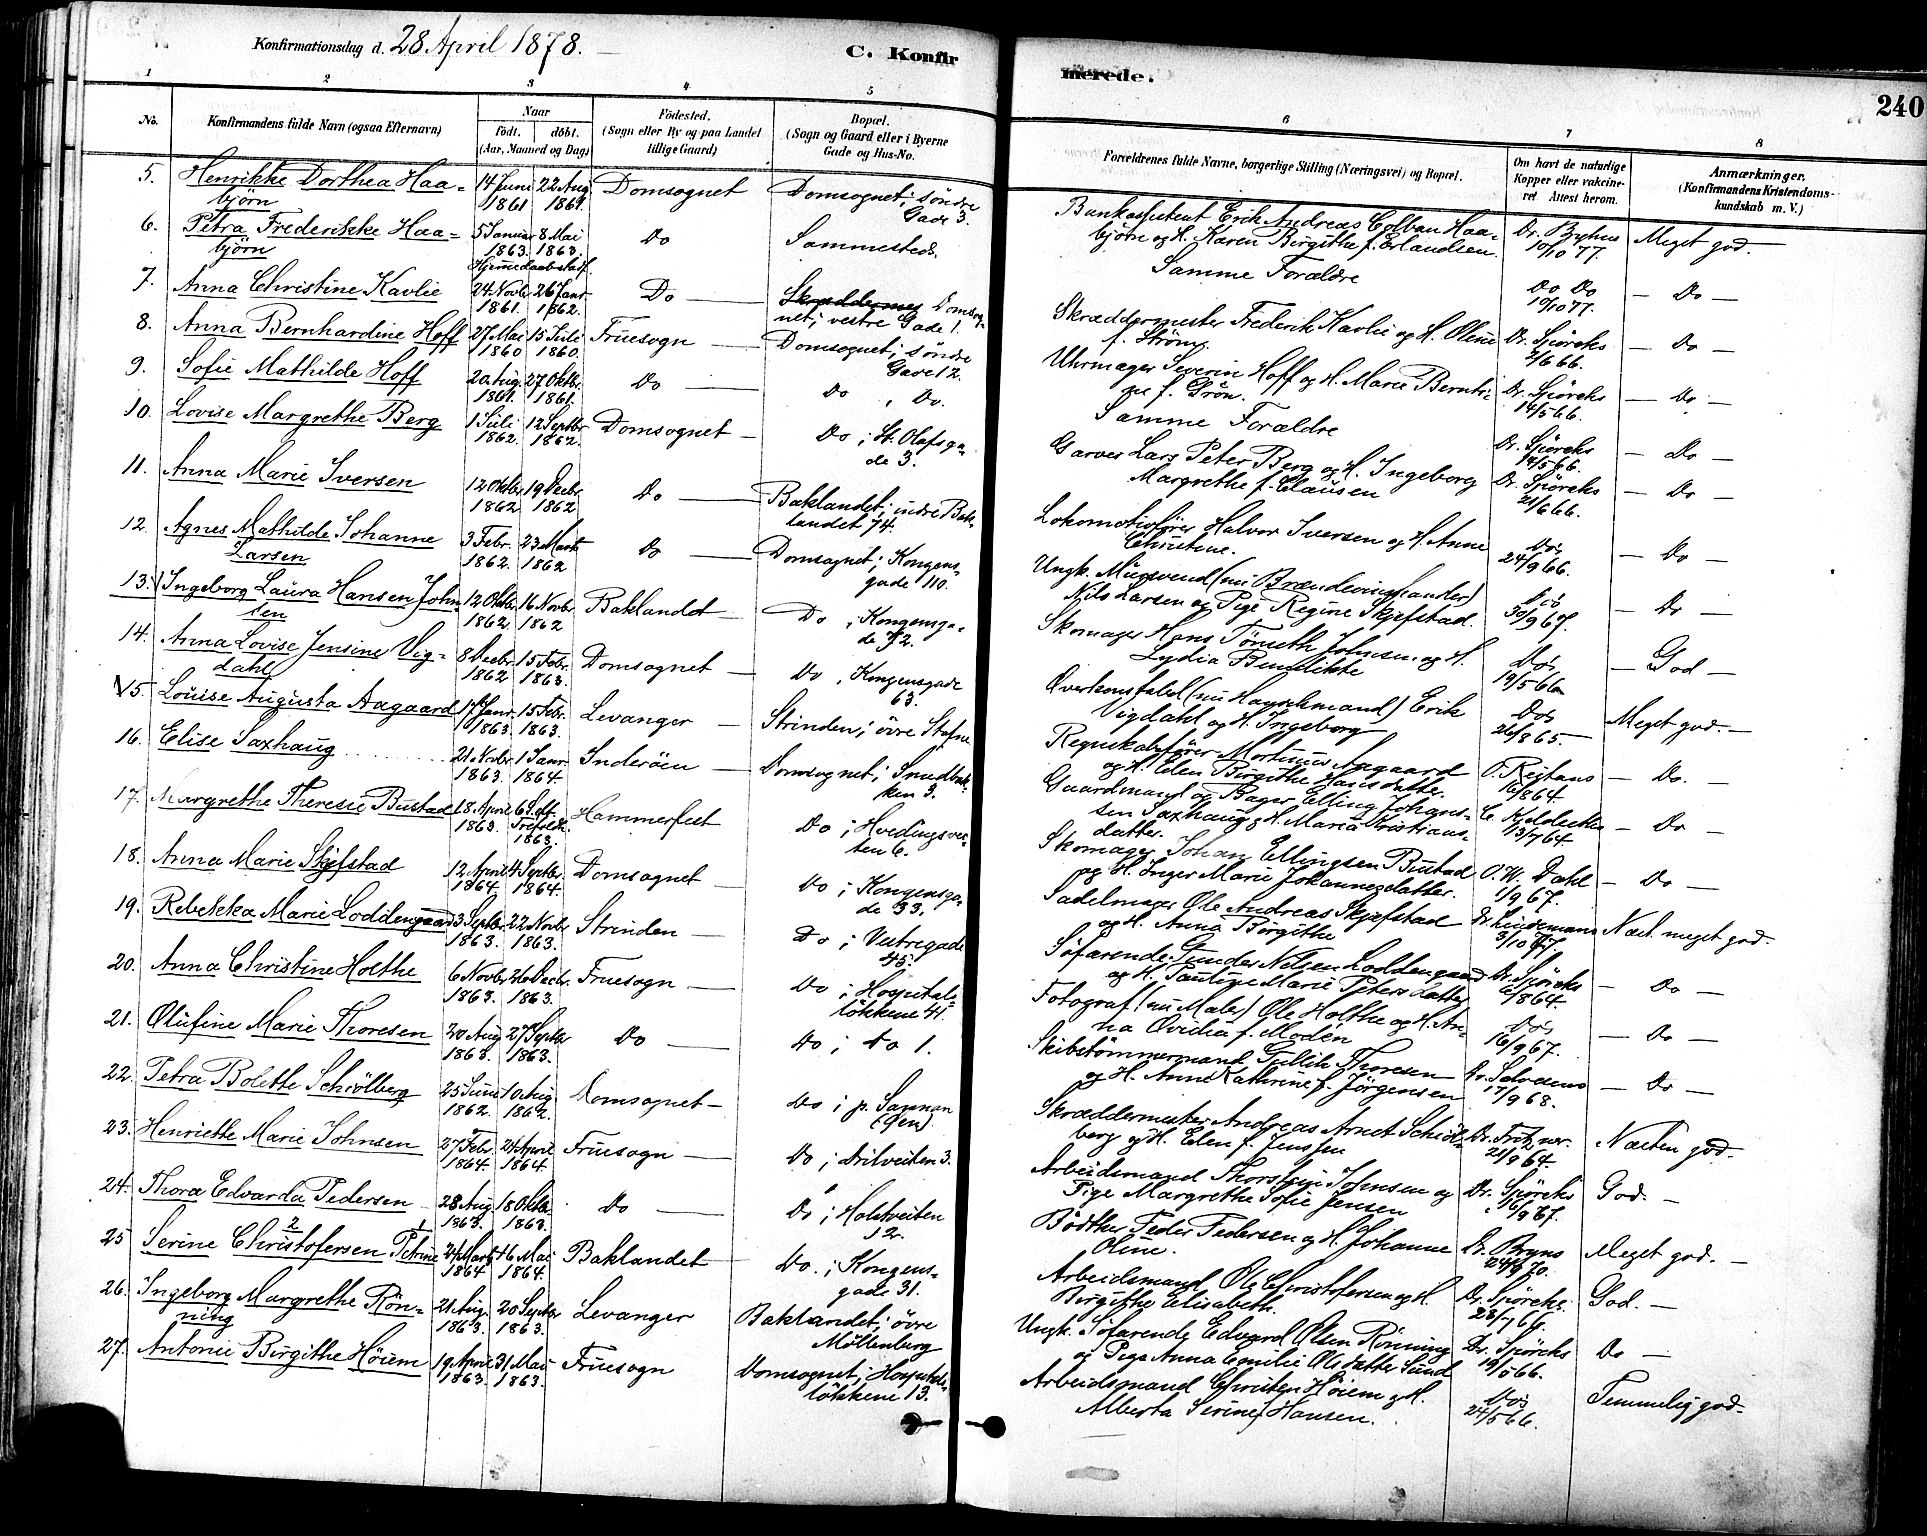 Konfirmationsdag d. 28 April 1878.
C. Konfir
1 2 3 4 5
No.
Konfirmandens fulde Navn (ogsaa Efternavn)
Naar
født. døbt.
(Aar, Maaned og Dag)
Födested.
(Sogn eller By og paa Landet
tillige Gaard)
Bopæl.
(Sogn og Gaard eller i Byerne
Gade og Hus-No.
5. Henrikke Dorthea Haa- 14 Juni 22 Aug. Domsognet Domsognet; söndre
björn 1861 1861. Gade 3.
6. Petra Frederikke Haa- 5 Januar 8 Mai Do Sammesteds.
björn 1863. 1863.
Hjemmedaabstadf.
7. Anna Christine Kavlie 24 Novbr 26 Janr Do Skræddernes Domsog-
1861. 1862. net; vestre Gade 1.
8. Anna Bernhardine Hoff 27 Mai 15 Juli Fruesogn Domsognet; söndre
1860 1860. Gade 12.
9. Sofie Mathilde Hoff 20 Aug. 27 Oktbr. Do Do , Do.
1861. 1861.
10. Lovise Margrethe Berg 1 Juli 12 Septbr Domsognet Do; St. Olafsga-
1862. 1862. de 3.
11. Anna Marie Iversen 12 Oktbr 19 Decbr. Do Baklandet; indre Bak-
1862 1862 landet 74.
12. Agnes Mathilde Johanne 3 Febr. 23 Marts Do Domsognet; Kongens-
Larsen 1862. 1862 gade 110.
13. Ingeborg Laura Hansen John- 12 Oktbr 16 Novbr Baklandet Do , Kongensga-
sen 1862. 1862 de 72.
14. Anna Lovise Jensine Vig- 8 Decbr. 15 Febr. Domsognet Do , Kongensgade
dahl 1862 1863. 63.
15. Louise Augusta Aagaard 17 Janr. 15 Febr. Levanger Strinden; övre Stafne
1863. 1863.
16. Elise Saxhaug 21 Novbr 1 Janr. Inderöen Domsognet; Smedbak-
1863. 1864. ken 3.
17. Margrethe Theresie Bustad 18 April 6 S. eft. Hammerfest Do; Hvedingsvei-
1863. Trefoldh. ten 6.
1863.
18. Anna Marie Skjefstad 12 April 4 Septbr. Domsognet Do; Kongensga-
1864. 1864. de 33.
19. Rebekka Marie Loddengaard 3 Septbr 22 Novbr Strinden Do; Vestregade
1863. 1863. 45.
20. Anna Christine Holthe 6 Novbr 26 Decbr. Fruesogn Do; Hospitals-
1863. 1863. lökkene 41.
21. Olufine Marie Thoresen 20 Aug 27 Septbr Do Do; Do 1.
1863. 1863.
22. Petra Bolette Schiölberg 25 Juni 10 Aug Domsognet Do; p. Sannan
1862. 1862. (gen).
23. Henriette Marie Johnsen 27 Febr. 24 April Fruesogn Do; Drilveiten 3.
1864. 1864.
24. Thora Edvarda Pedersen 28 Aug 18 Oktbr. Do Do; Holstveiten
1863. 1863. 12.
2 1
25 Serine Christofersen Petrine 24 Marts 16 Mai Baklandet Do.; Kongens-
1864 1864. gade 31.
26. Ingeborg Margrethe Rön- 21 Aug. 20 Septbr Levanger Baklandet; övre
ning 1863. 1863. Möllenberg
27. Antonie Birgithe Höiem 19 April 31 Mai Fruesogn Domsognet; Hospitals-
1863. 1863. lökkene 13.
merede.
240
6 7 8
Forældrenes fulde Navne, borgerlige Stilling (Næringsvei) og Bopæl.
Om havt de naturlige
Kopper eller vakcine-
ret. Attest herom.
Anmærkninger.
(Konfirmandens Kristendoms-
kundskab m. V.)
Bankassistent Erik Andreas Colban Haa- Dr. Bryhns Meget god.
björn og H. Karen Birgithe f. Erlandsen. 10/10 77.
Samme Forældre Do Do Do
10/10 77.
Skræddermester Frederik Kavlie og H. Oline Dr. Spörcks Do
f. Ström. 7/6 66.
Uhrmager Severin Hoff og H. Marie Bernti- Dr. Spörcks Do
ne f. Grön. 14/5 66.
Samme Forældre Dr. Spörcks Do
14/5 66.
Garver Lars Peter Berg og H. Ingeborg Dr. Spörcks Do
Margrethe f. Clausen 21/6 66.
Lokomotivförer Halvor Iversen og H. Anne Do's Do
Christine. 24/9 66.
Ungk. Muursvend (nu Brændevinshandler) Do's Do
Nils Larsen og Pige Regine Skjefstad. 30/9 67.
Skomager Hans Tömeth Johnsen og H. Do's God
Lydia Bendikte 19/5 66.
Overkonstabel (nu Haandmand) Erik Do's Meget god.
Vigdahl og H. Ingeborg 26/8 65.
Regnskabsförer Mortinus Aagaard O. Rejtans Do.
og H. Elen Birgithe Hansdatter. /8 64.
Gaardmand og Bager Elling Johans- C. Do
sen Saxhaug & H. Maria Kristians- 13/7 64
datter.
Skomager Johan Ellingsen Bustad O. W. Dahl Do
og H. Inger Marie Johannesdatter. 1/9 67.
Sadelmager Ole Andreas Skjefstad Dr. Lindemans Næst meget god.
og H. Anna Börgithe 3/10 77.
Söfarende Gunder Nelsen Loddengaard Dr. Spörcks Do
og H. Marie Petersdatter 6/8 64.
Fotograf (nu Maler) Ole Holthe og H. An- Do's Do
na Ovidia f. Modén 16/9 67.
Skibstömmermand Gullik Thoresen Dr. Selvesens Do
og H. Anne Kathrine f. Jörgensen 17/9 68.
Skræddermester Andreas Arnet Schiöl- Dr. Fritzner. Næsten god.
berg og H. Elen f. Jenssen 21/9 64.
Arbeidsmand Thorstein Johnsen og Dr. Spörcks God.
Pige Margrethe Sofie Jensen 16/9 67.
Bödtker Peder Pedersen og H. Johanne Dr. Bryns Meget god.
Oline. 24/9 70.
Arbeidsmand Ole Christofersen og H. Dr. Spörcks. God.
Birgithe Elisabeth. 23/7 66.
Ungk. Söfarende Edvard Olsen Rönning Dr. Spörcks Do
og Pige Anna Emilie Olsdatter Sund 19/5 66.
Arbeidsmand Christen Höiem og H. Do's Temmelig god.
Alberta Serine f. Hansen. 24/5 66.